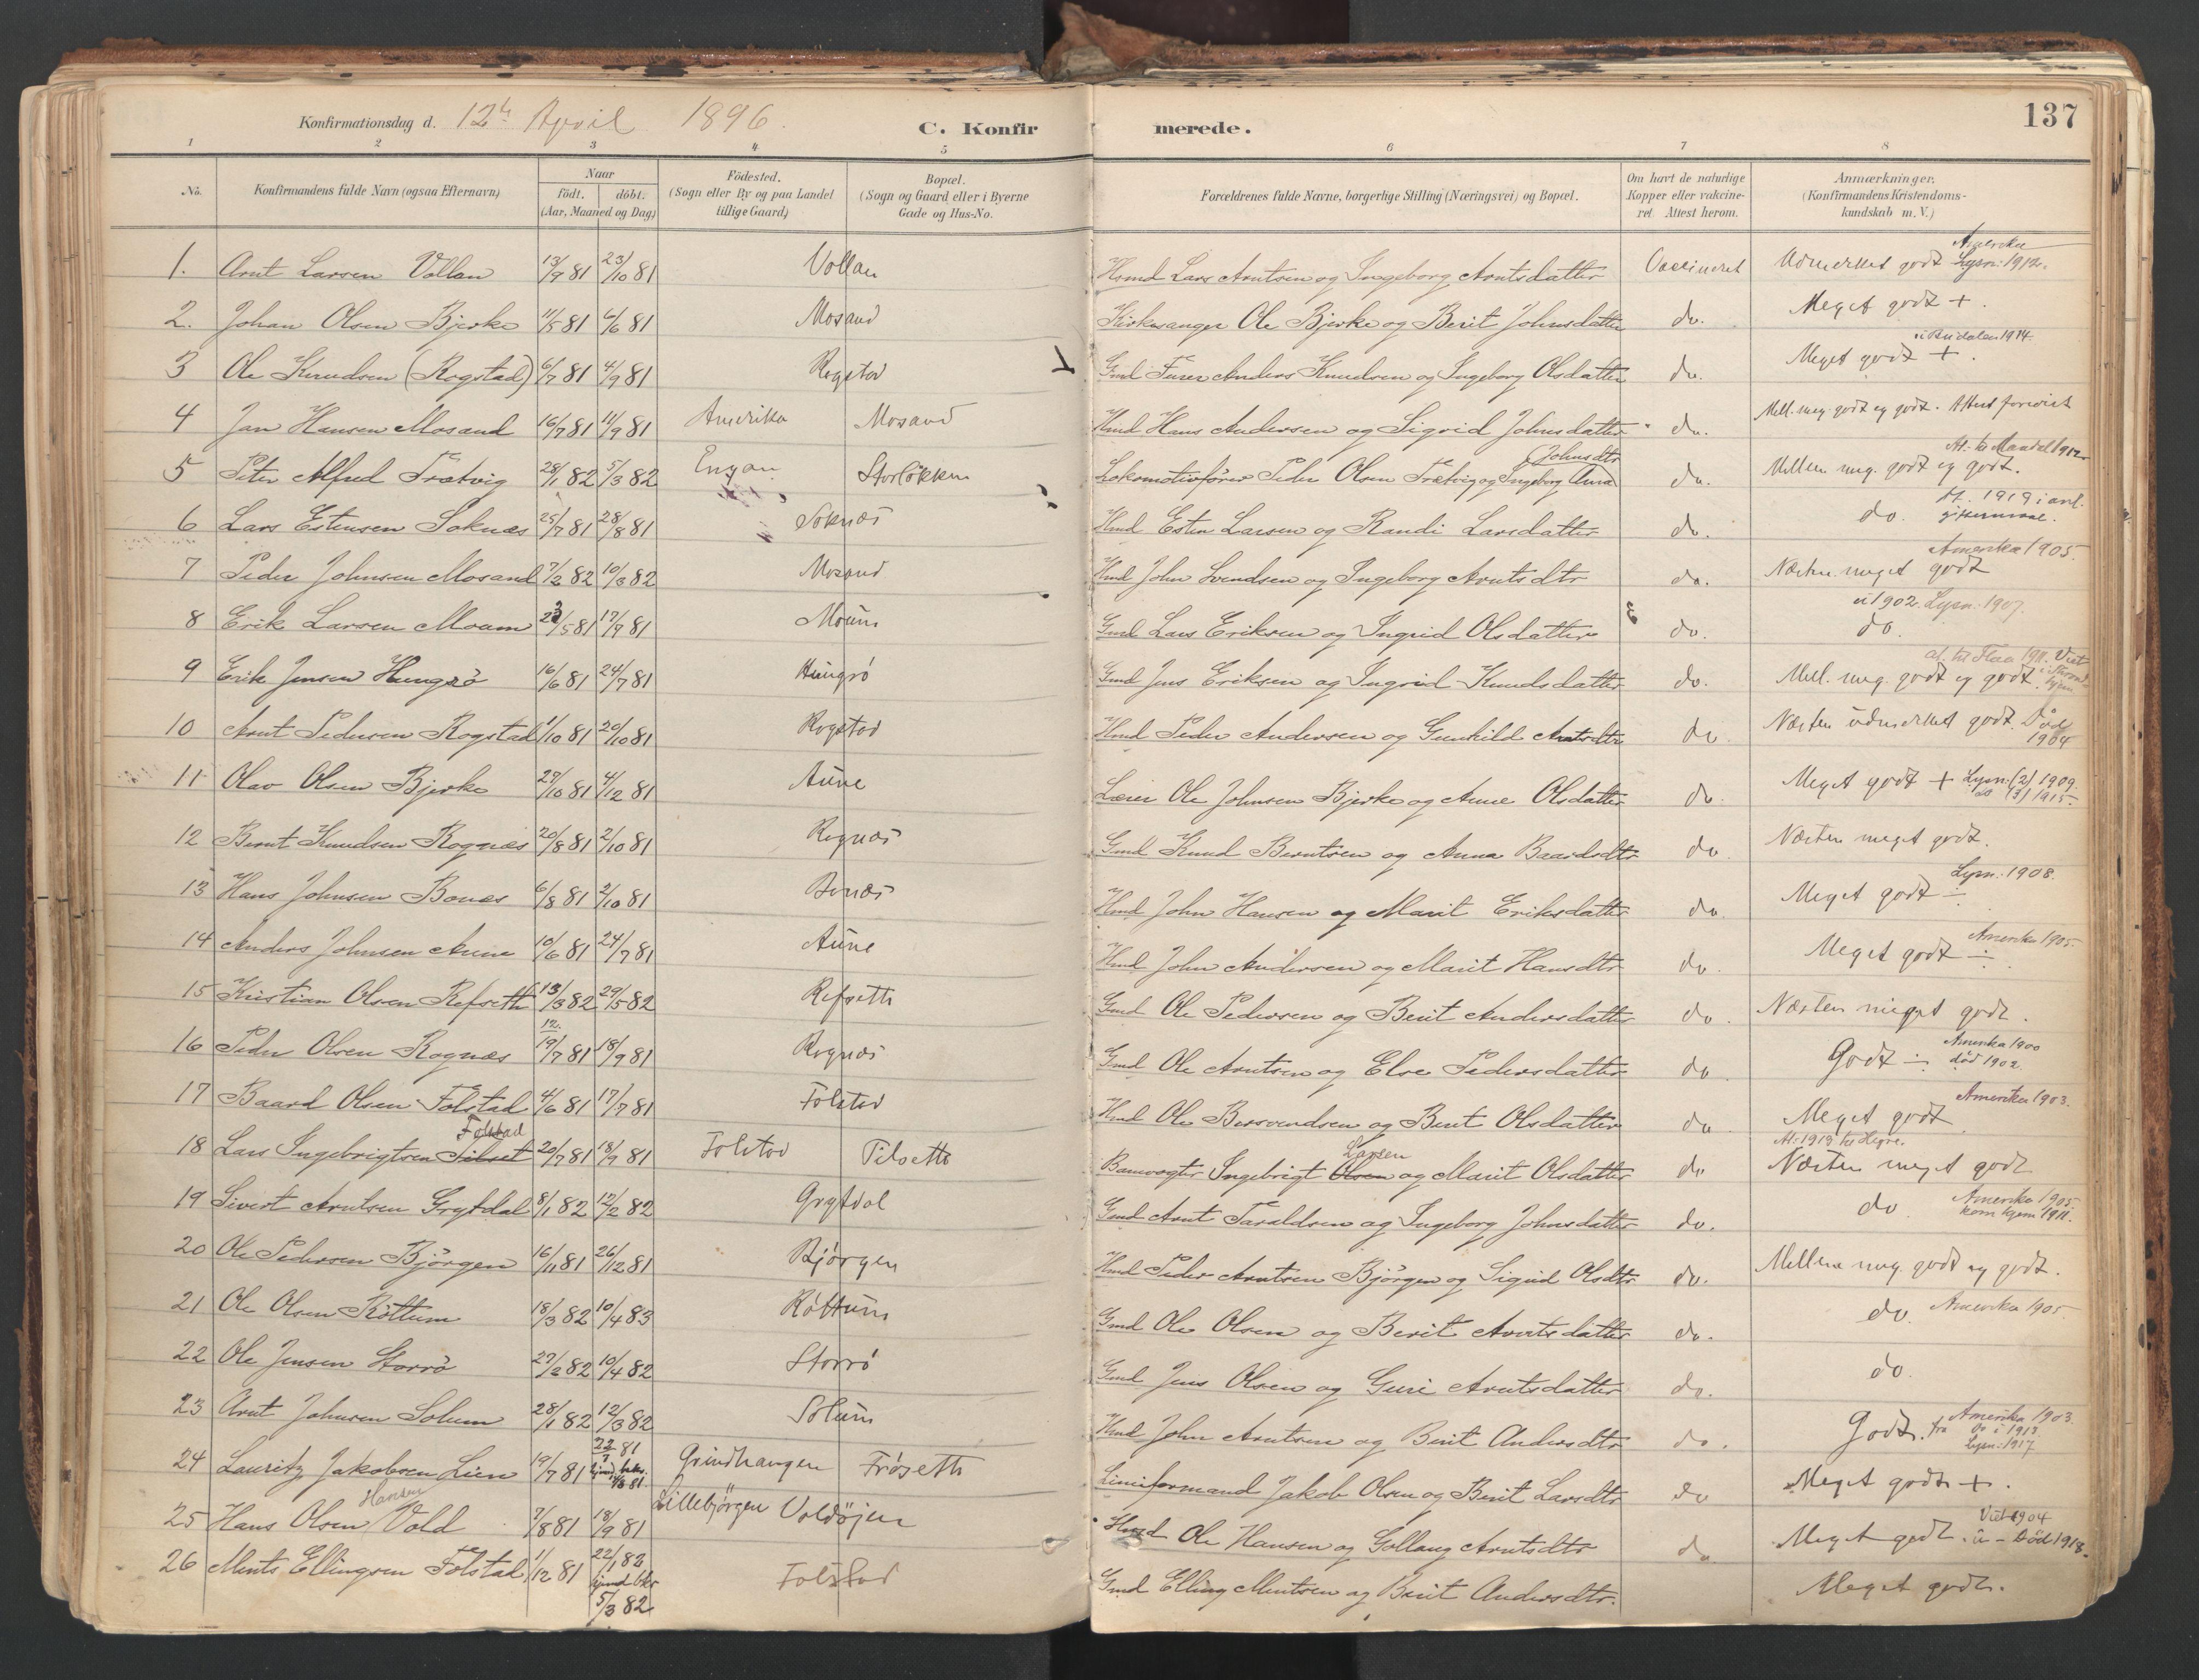 Konfirmationsdag d. 12te April 1896. C. Konfirmerede. 137
1 2 3 4 5 6 7 8
No. Konfirmandens fulde Navn (ogsaa Efternavn) Naar født. døbt. (Aar, Maaned og Dag) Fødested. (Sogn eller By og paa Landet tillige Gaard) Bopæl. (Sogn og Gaard eller i Byerne Gade og Hus-No. Forældrenes fulde Navne, borgerlige Stilling (Næringsvei) og Bopæl. Om havt de naturlige Kopper eller vakcineret Attest herom. Anmærkninger. (Konfirmandens Kristendomskundskab m. V.)
1. Arnt Larsen Vollan 13/9 81 23/10 81 Vollan Hsmd Lars Arntsen og Ingeborg Arntsdatter Vaccineret Udmerket godt Amerika Lysn: 1912.
2. Johan Olsen Bjerke 11/5 81 6/6 81 Mosand Kirkesanger Ole Bjerke og Berit Johnsdatter do. Meget godt +.
3 Ole Knudsen (Rogstad) 6/7 81 4/9 81 Rogstad Gmd Furer Anders Knudsen og Ingeborg Olsdatter do. Meget godt +. i Budalen 1914.
4 Jan Hansen Mosand 16/7 81 11/9 81 Amerika Mosand Hmd Hans Andersen og Sigrid Johnsdatter do. Mell. meg. godt og godt. Attest forevist
5 Peter Alfred Trætvig 28/1 82 5/3 82 Engan Storløkken Lokomotivfører Peder Olsen Trætvig og Ingeborg Anna Johnsdtr do. Mellem meg. godt og godt. At. to Mandal 1912
6 Lars Estensen Soknæs 25/7 81 28/8 81 Soknæs Hmd Esten Larsen og Randi Larsdatter do. do. At. 1919 i anl. giftermaal.
7 Peder Johnsen Mosand 7/2 82 10/3 82 Mosand Hmd John Svendsen og Ingeborg Arntsdtr do. Næsten meget godt Amerika 1905.
8 Erik Larsen Moum 23/5 81 17/9 81 Moum Gmd Lars Eriksen og Ingrid Olsdatter do. do. 1902. Lysn: 1907.
9 Erik Jensen Haugrø 16/6 81 24/7 81 Haugrø Gmd Jens Eriksen og Ingrid Knudsdatter do. Mell. meg. godt og godt. at. til Flaa 1911.
10 Arnt Pedersen Rogstad 1/10 81 20/10 81 Rogstad Hmd Peder Andersen og Gunhild Arntsdtr do Næsten udmerket godt. Død 1904
11 Olav Olsen Bjerke 27/10 81 4/12 81 Aune Lærer Ole Johnsen Bjerke og Anne Olsdatter do. Meget godt + Lysn: (2) 1909. do (3) 1915.
12 Bernt Knudsen Rognæs 20/8 81 2/10 81 Rognæs Gmd Knud Berntsen og Anna Baardsdtr do. Næsten meget godt.
13 Hans Johnsen Bonæs 6/8 81 2/10 81 Bonæs Hmd John Hansen og Marit Eriksdatter do. Meget godt ÷ Lysn: 1908.
14 Anders Johnsen Aune 10/6 81 24/7 81 Aune Hmd John Andersen og Marit Hansdtr do. Meget godt ÷ Amerika 1905.
15 Kristian Olsen Refseth 13/3 82 29/5 82 Refseth Gmd Ole Pedersen og Berit Andersdatter do. Næsten meget godt.
16 Peder Olsen Rognæs 12. 19/7 81 18/9 81 Rognæs Gmd Ole Arntsen og Else Pedersdatter do. Godt ÷ Amerika 1900 død 1902.
17 Baard Olsen Folstad 4/6 81 17/7 81 Folstad Hmd Ole Bersvendsen og Berit Olsdatter do Meget godt Amerika 1903.
18 Lars Ingebrigtsen Tilset Folstad 20/7 81 18/9 81 Folstad Tilseth Banevogter Ingebrigt Olsen Larsen og Marit Olsdatter do Næsten meget godt At: 1919 til Hegre.
19 Sivert Arntsen Grytdal 8/1 82 12/2 82 Grytdal Gmd Arnt Taraldsen og Ingeborg Johnsdatter do. do. Amerika 1905. kom hjem 1911.
20 Ole Pedersen Bjørgen 16/11 81 26/12 81 Bjørgen Hmd Peder Arntsen Bjørgen og Sigrid Olsdtr do. Mellem meg. godt og godt.
21 Ole Olsen Røttum 18/3 82 10/4 83 Røttum Gmd Ole Olsen og Berit Arntsdatter do. do. Amerika 1905
22 Ole Jensen Storrø 27/2 82 10/4 82 Storrø Gmd Jens Olsen og Guri Arntsdatter do. do.
23 Arnt Johnsen Solum 28/1 82 12/3 82 Solum Hmd John Arntsen og Berit Andersdtr do. Godt. Amerika 1903. fra do i 1913. Lysn: 1917
24 Lauritz Jakobsen Lien 19/7 81 22/7 81 hjemd. bekr. 14/8 81. Grindhaugen Frøseth Linieformand Jakob Olsen og Berit Larsdtr do Meget godt +.
25 Hans Olsen Vold Hansen 7/8 81 18/9 81 Lillebjørgen Voldøjen Hsmd Ole Hansen og Gollaug Arntsdtr do Meget godt. Viet 1904 Død 1918.
26 Ments Ellingsen Folstad 1/12 81 22/1 82 hjemd. bkr 5/3 82 Folstad Gmd Elling Mentsen og Berit Andersdtr. Meget godt.